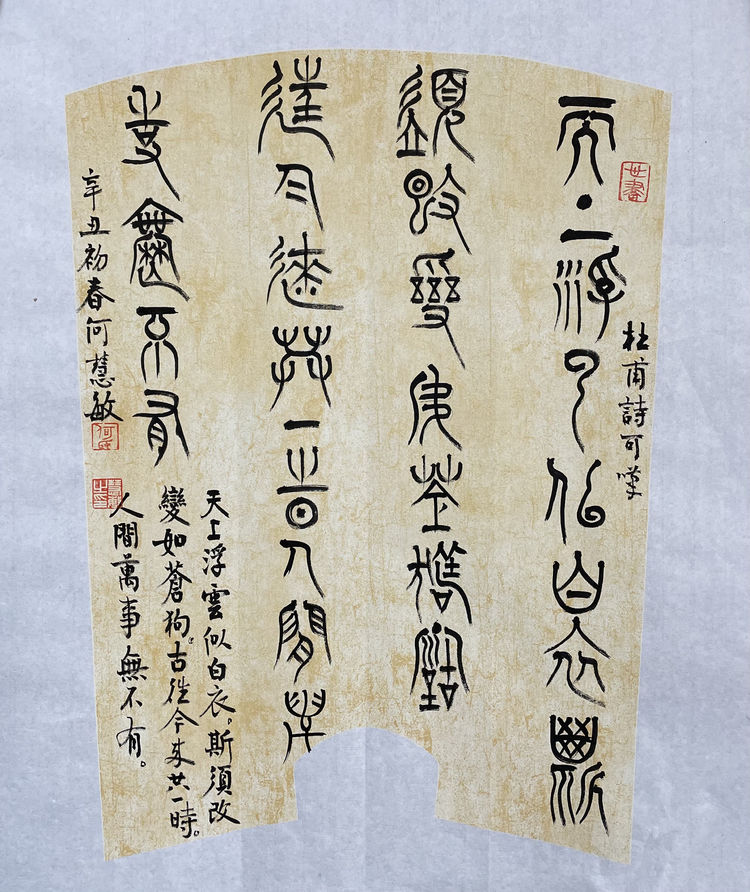 天上浮雲似白衣斯
杜甫詩可嘆
須改變如蒼狗古
往今來共一時人間萬
事無不有
辛丑初春何慧敏
何氏
天上浮雲似白衣。斯須改
變如蒼狗。古往今來共一時。
人間萬事無不有。